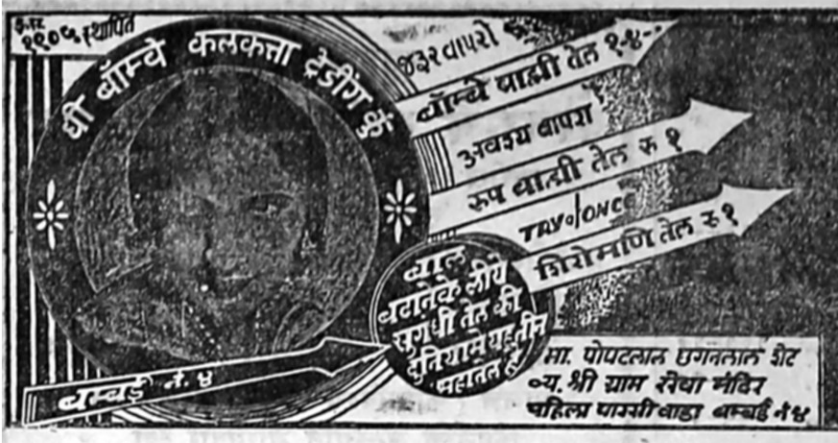 इ.स.
१९०५ स्थापित
धी बॉम्बे कलकत्ता ट्रेडींग कुं
જરૂર વાપરો
बॉम्बे ब्राह्मी तेल १-४-०
अवश्य वापरा
रुप ब्राह्मी तेल रु १
TRY ONCE
शिरोमणि तेल रु १
बाल
बढानेके लीये
सुगंधी तेल की
दुनियामें यह तीन
बम्बई नं. ४
मा. पोपटलाल छगनलाल शेट
व्य. श्री ग्राम सेवा मंदिर
पहिला पारसीवाडा बम्बई नं ४